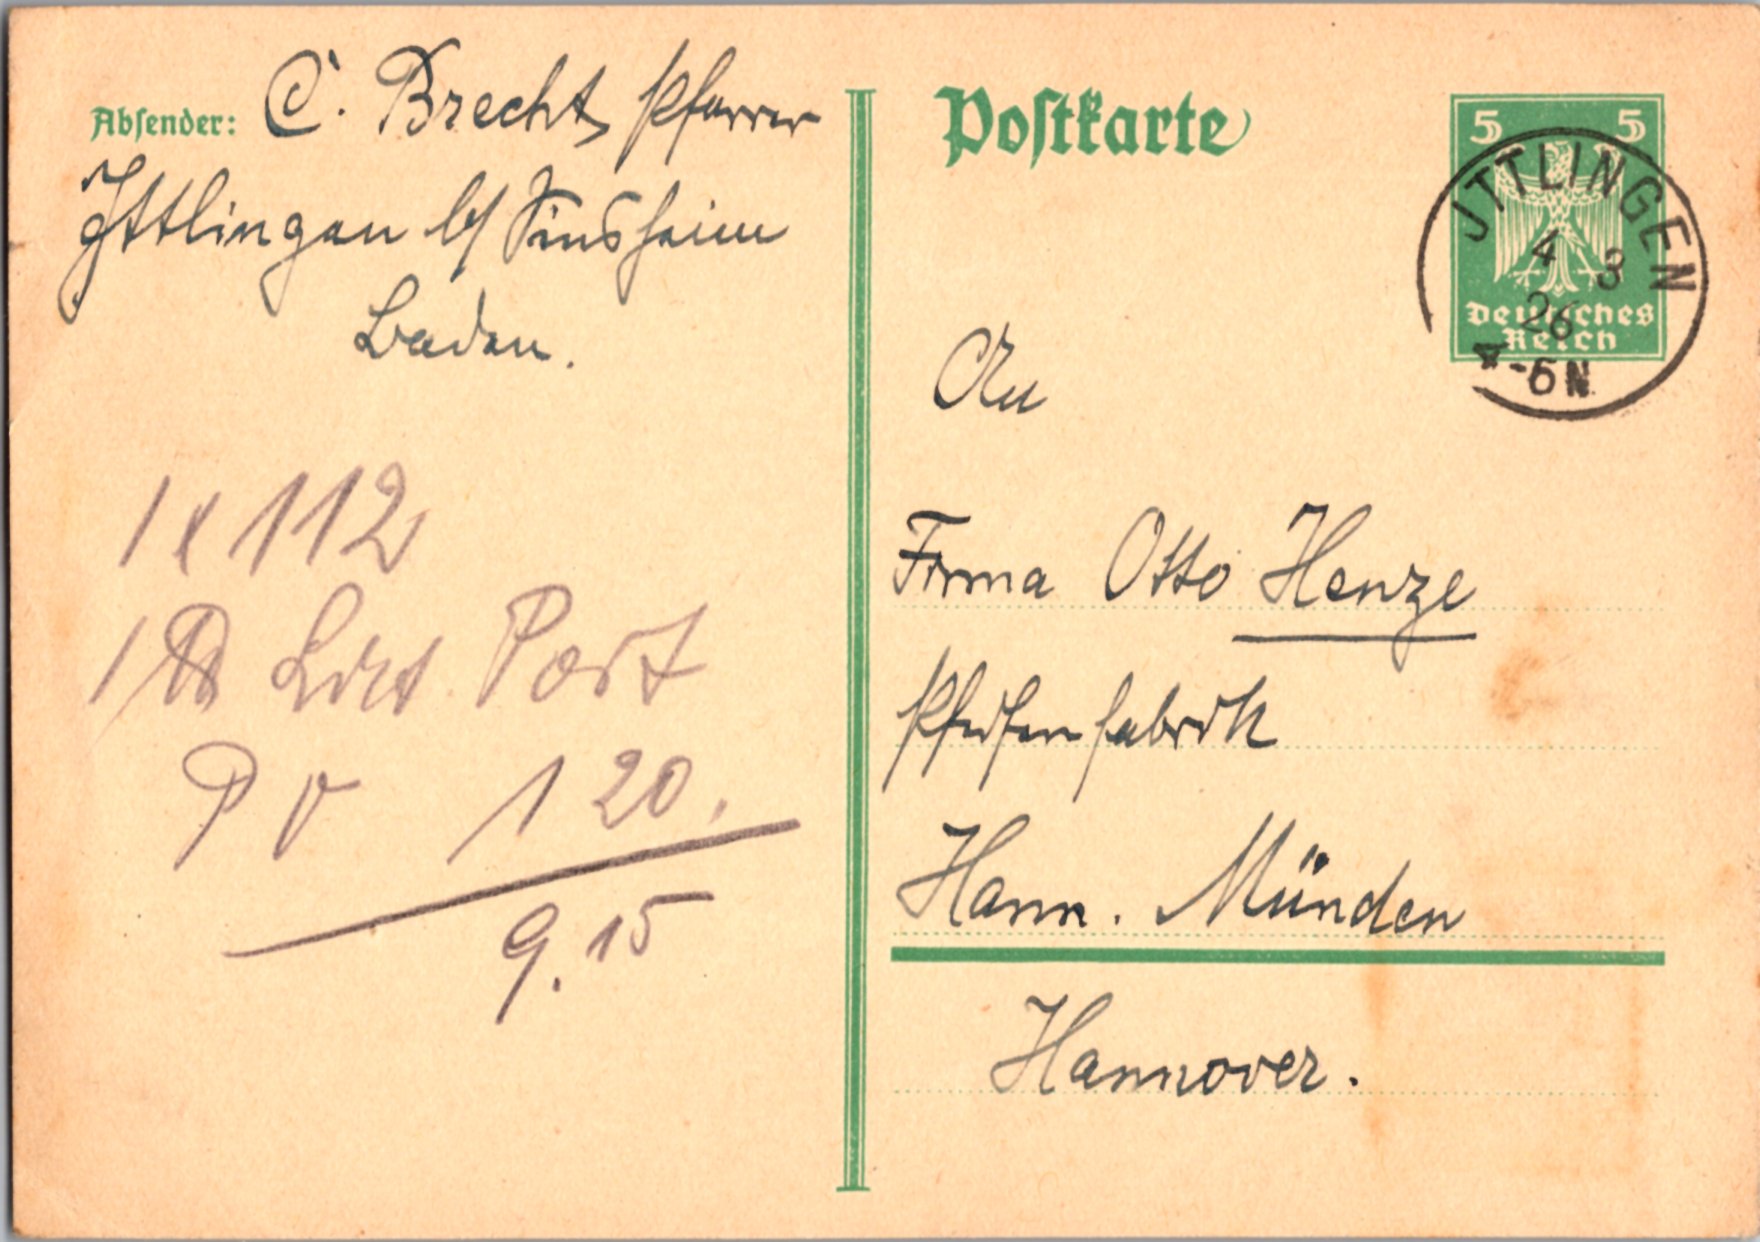 Absender: C. Brecht, Pfarrer
Ittlingen b/ Sinsheim
Baden.
1 x 112
1 ℔ Port
P V 1 20.
9.15
Postkarte
5 5
Deutsches
Reich
JTTLINGEN
4 3
26
4-6N
An
Firma Otto Henze
Pfeifenfabrik
Hann. Münden
Hannover.